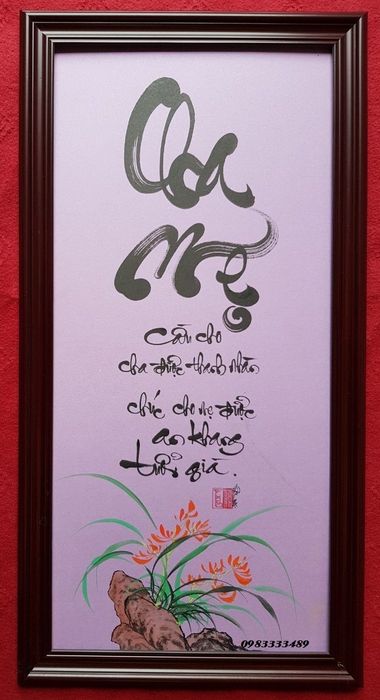 Cha
Mẹ
Cầu cho
cha được thanh nhàn
chúc cho mẹ được
an khang
tuổi già.
0983333489